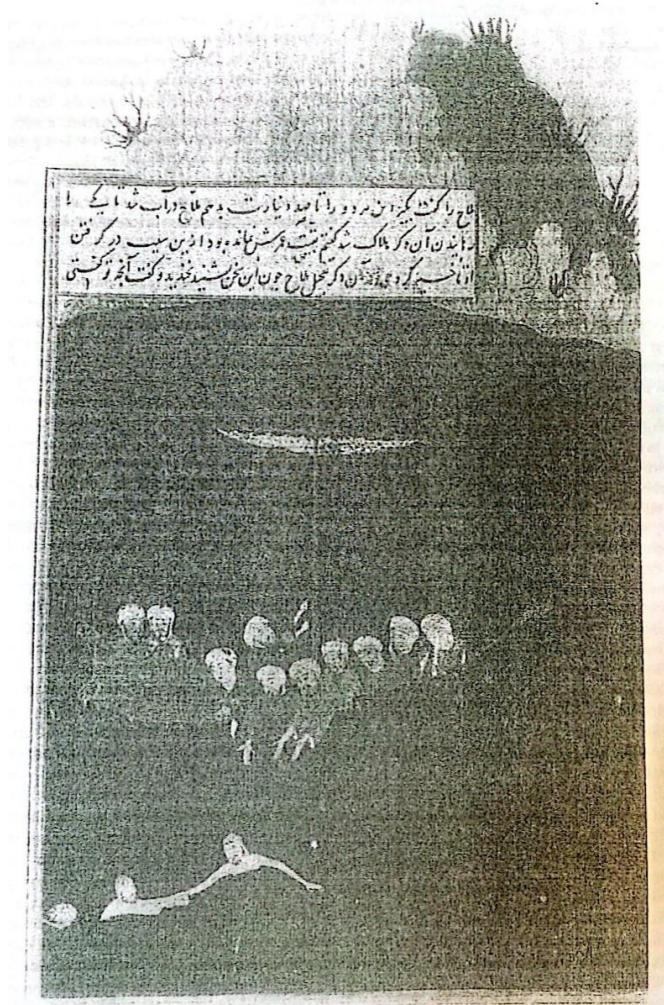 ملاح را گفت بگیر این هر دو را تا صد دینارت بدهم ملاح در آب شد تا یکی را
آن دگر هلاک شد گفتم بقیت عمرش نمانده بود ازین سبب در گرفتن
او تاخیر کردی و در آن دگر تعجیل ملاح چون این سخن بشنید بخندید و گفت آنچه تو گفتی